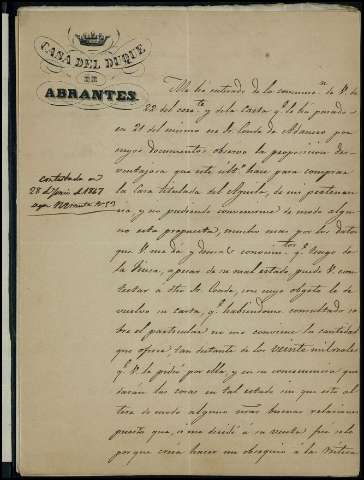 CASA DEL DUQUE
DE
ABRANTES.
contestado en
28 de Junio de 1867
Me he enterado de la comunic.n de V. de
22 del corr.te y de la Carta q.e le ha pasado
en 21 del mismo el Sr. Conde de
cuyos documentos observo la proposicion des-
ventajosa que este ult.o hace para comprar
la Casa titulada del Aguila, de mi pertenen-
cia, y no pudiendo convenirme de modo algu-
no esta propuesta, mucho mas por los datos
que V. me dá y demas conocim.tos q.e tengo de
la finca, apesar de su mal estado, puede V. con-
testar á dho Sr. Conde, con cuyo objeto le de-
vuelvo su carta, q.e habiendome consultado so-
bre el particular no me conviene la cantidad
que ofrece, tan distante de los veinte mil reales
q.e V. le pidió por ella, y en su consecuencia que-
darán las cosas en tal estado sin que esto al-
tere de modo alguno ntras buenas relaciones
puesto que, si me decidí á su venta fué solo
porque creia hacer un obsequio á la